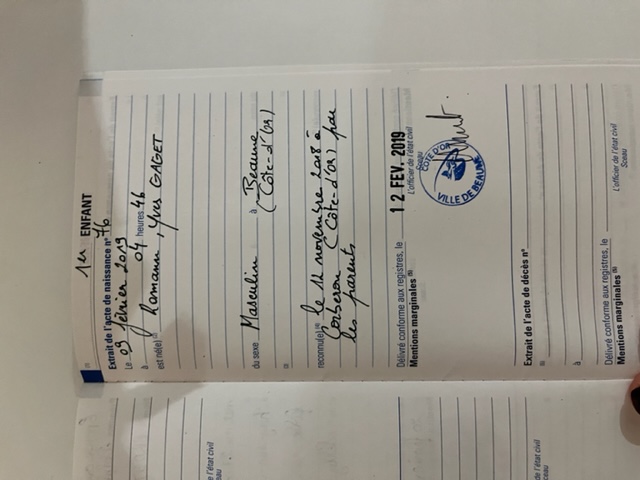 1er ENFANT
Extrait de l'acte de naissance n° 76
Le 09 février 2019
à 04 heures 46
est né(e) Romann, Yves GAGET
du sexe Masculin à Beaune
(Côte-d'Or)
reconnu(e) le 12 novembre 2018 à
Corberon (Côte-d'Or) par
les parents
Délivré conforme aux registres, le 12 FEV. 2019
Mentions marginales
L'officier de l'état civil
Sceau
CÔTE D'OR
VILLE DE BEAUNE
Extrait de l'acte de décès n°
à
Délivré conforme aux registres, le
Mentions marginales
L'officier de l'état civil
Sceau
de l'état civil
de l'état civil